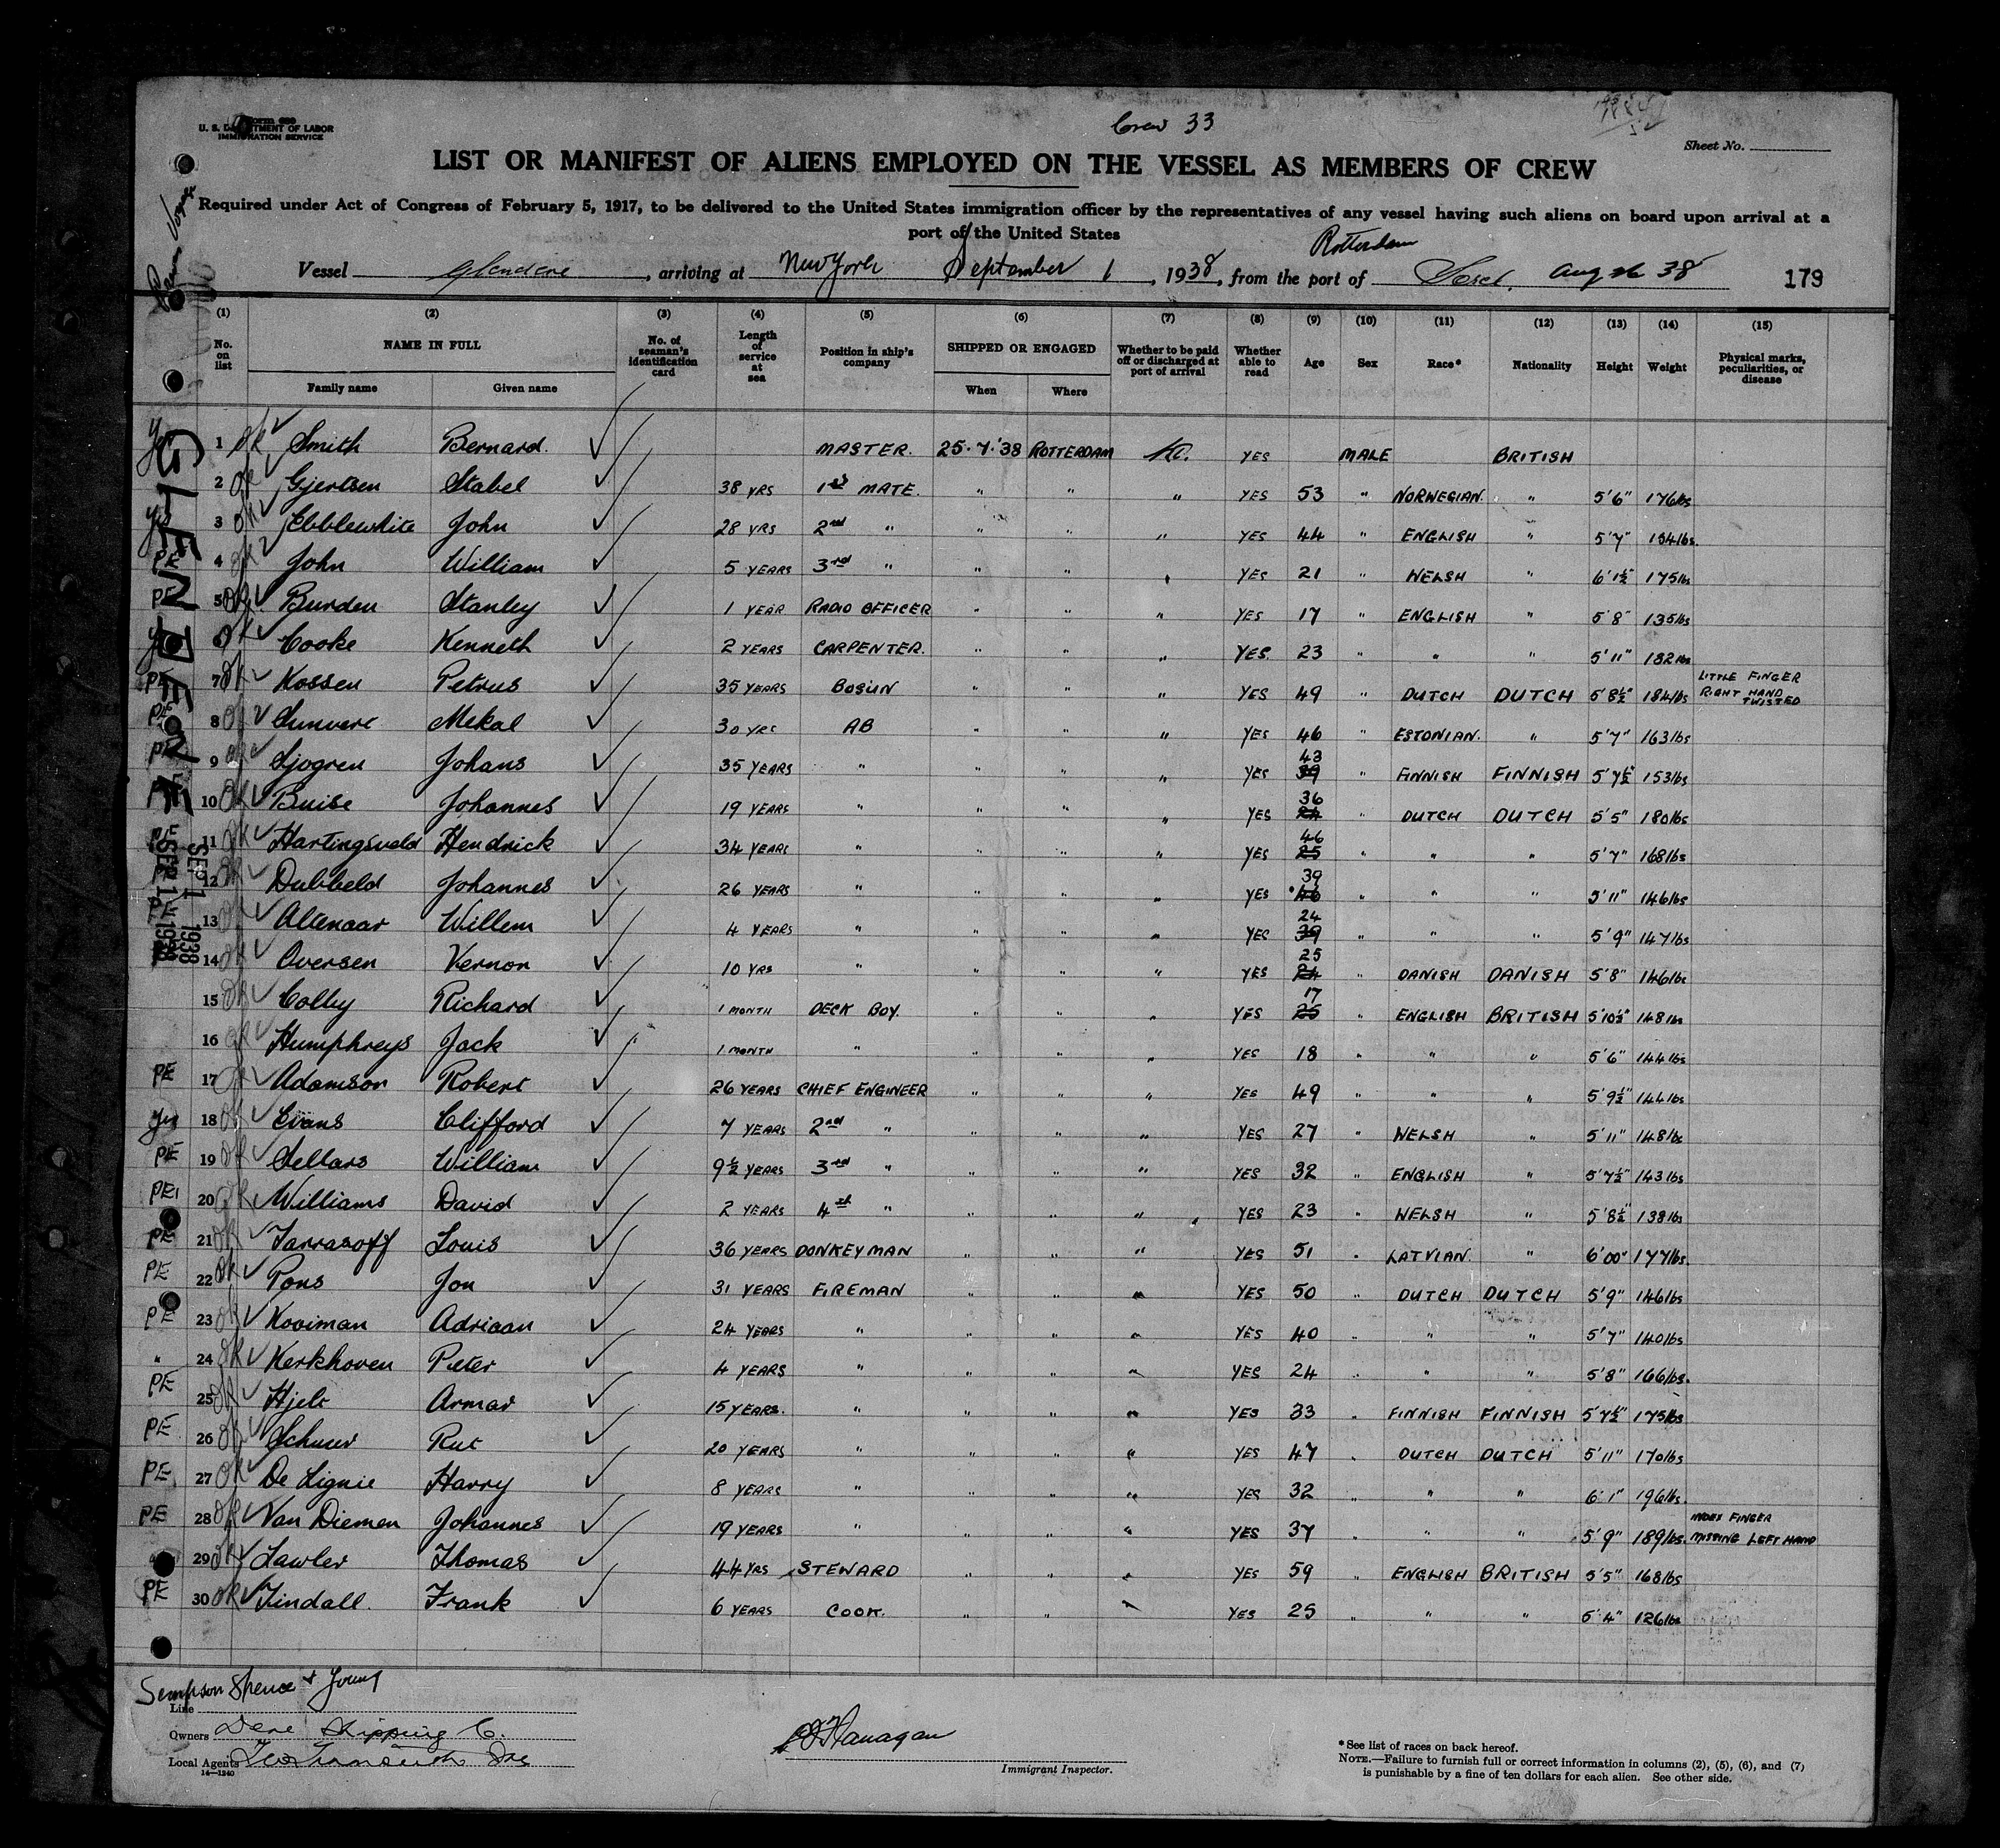 Form 689
U. S. DEPARTMENT OF LABOR
IMMIGRATION SERVICE
Crew 33
Sheet No.
LIST OR MANIFEST OF ALIENS EMPLOYED ON THE VESSEL AS MEMBERS OF CREW
Required under Act of Congress of February 5, 1917, to be delivered to the United States immigration officer by the representatives of any vessel having such aliens on board upon arrival at a
port of the United States
Rotterdam
Vessel Glendene, arriving at New York September 1, 1938, from the port of Aug 26 38 179
(1) (2) (3) (4) (5) (6) (7) (8) (9) (10) (11) (12) (13) (14) (15)
No. on list NAME IN FULL No. of seaman's identification card Length of service at sea Position in ship's company SHIPPED OR ENGAGED Whether to be paid off or discharged at port of arrival Whether able to read Age Sex Race* Nationality Height Weight Physical marks, peculiarities, or disease
Family name Given name When Where
GLENDENE
SEP 1 1938
SEP 1 1938
Yes 1 OK Smith Bernard. MASTER. 25.7.'38 ROTTERDAM No. YES MALE BRITISH
2 OK Gjertsen Stabel 38 YRS 1st MATE. " " " YES 53 " NORWEGIAN. " 5'6" 176lbs
Yes 3 OK Ebblewhite John 28 YRS 2nd " " " " YES 44 ENGLISH " 5'7" 154lbs.
PE 4 OK John William 5 YEARS 3rd " " " " YES 21 " WELSH " 6'1½" 175lbs
PE 5 OK Burden Stanley 1 YEAR RADIO OFFICER " " " YES 17 " ENGLISH " 5'8" 135lbs
Yes 6 OK Cooke Kenneth 2 YEARS CARPENTER. " " " YES. 23 " " " 5'11" 182lbs
PE 7 OK Kossen Petrus 35 YEARS BOSUN " " " YES 49 " DUTCH DUTCH 5'8½" 184lbs LITTLE FINGER RIGHT HAND TWISTED
PE 8 OK Mekal 30 YRS AB " " " YES 46 " ESTONIAN. " 5'7" 163lbs
PE 9 OK Sjogren Johans 35 YEARS " " " YES 43 39 " FINNISH FINNISH 5'7½" 153lbs
10 OK Buise Johannes 19 YEARS " " " " YES 36 24 " DUTCH DUTCH 5'5" 180lbs
PE 11 OK Hartingsveld Hendrick 34 YEARS " " " " YES 46 25 " " " 5'7" 168lbs
12 OK Dubbeld Johannes 26 YEARS " " " " YES 39 46 " " " 5'11" 146lbs
PE 13 OK Altenaar Willem 4 YEARS " " " " YES 24 39 " " " 5'9" 147lbs
14 OK Oversen Vernon 10 YRS " " " " YES 25 24 " DANISH DANISH 5'8" 146lbs
15 OK Colby Richard 1 MONTH DECK BOY. " " " YES 17 25 " ENGLISH BRITISH 5'10½" 148lbs
16 OK Humphreys Jack 1 MONTH " " " " YES 18 " " " 5'6" 144lbs
PE 17 OK Adamson Robert 26 YEARS CHIEF ENGINEER " " " YES 49 " " " 5'9½" 144lbs
Yes 18 OK Evans Clifford 7 YEARS 2nd " " " " YES 27 " WELSH " 5'11" 148lbs
PE 19 OK Sellars William 9½ YEARS 3rd " " " " YES 32 " ENGLISH " 5'7½" 143lbs
PE 20 OK Williams David 2 YEARS 4th " " " " YES 23 " WELSH " 5'8½" 138lbs
PE 21 OK Tarrasoff Louis 36 YEARS DONKEYMAN " " " YES 51 " LATVIAN. " 6'00" 177lbs.
PE 22 OK Pons Jon 31 YEARS FIREMAN " " " YES 50 DUTCH DUTCH 5'9" 146lbs
PE 23 OK Kooiman Adriaan 24 YEARS " " " " YES 40 " " " 5'7" 140lbs
" 24 OK Kerkhoven Pieter 4 YEARS " " " " YES 24 " " " 5'8" 166lbs.
PE 25 OK Hjelt Armar 15 YEARS. " " " " YES 33 " FINNISH FINNISH 5'7½" 175lbs
PE 26 OK 20 YEARS " " " " YES 47 " DUTCH DUTCH 5'11" 170lbs
PE 27 OK De Lignie Harry 8 YEARS " " " " YES 32 " " " 6'1" 196lbs.
PE 28 OK Van Diemen Johannes 19 YEARS " " " " YES 37 " " " 5'9" 189lbs. INDEX FINGER MISSING LEFT HAND
29 OK Lawler Thomas 44 YRS STEWARD " " " YES 59 ENGLISH BRITISH 5'5" 168lbs
PE 30 OK Tindall. Frank 6 YEARS COOK. " " " YES 25 " " " 5'4" 126lbs
Simpson Spence & Young
Line
Owners Dene Shipping C.
Local Agents
14—1240
Flanagan
Immigrant Inspector.
* See list of races on back hereof.
NOTE.—Failure to furnish full or correct information in columns (2), (5), (6), and (7)
is punishable by a fine of ten dollars for each alien. See other side.